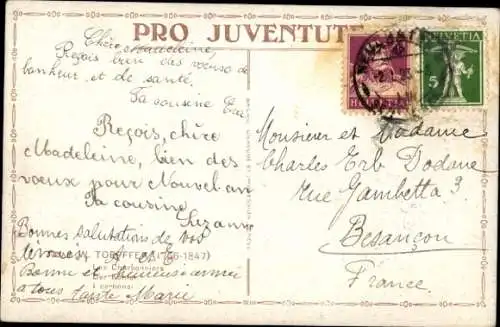 PRO JUVENTUTE
Chère Madeleine
Reçois bien des vœux de
bonheur et de santé.
Ta cousine
Reçois, chère
Madeleine, bien des
vœux pour Nouvel an
Ta cousine,
Suzanne
Bonnes salutations de vos
TÖPFFER (1766-1847)
Bonne et heureuse année
à tous tante Marie
HELVETIA
HELVETIA
5
Monsieur et Madame
Charles Erb Dodane
rue Gambetta 3
Besançon
France.